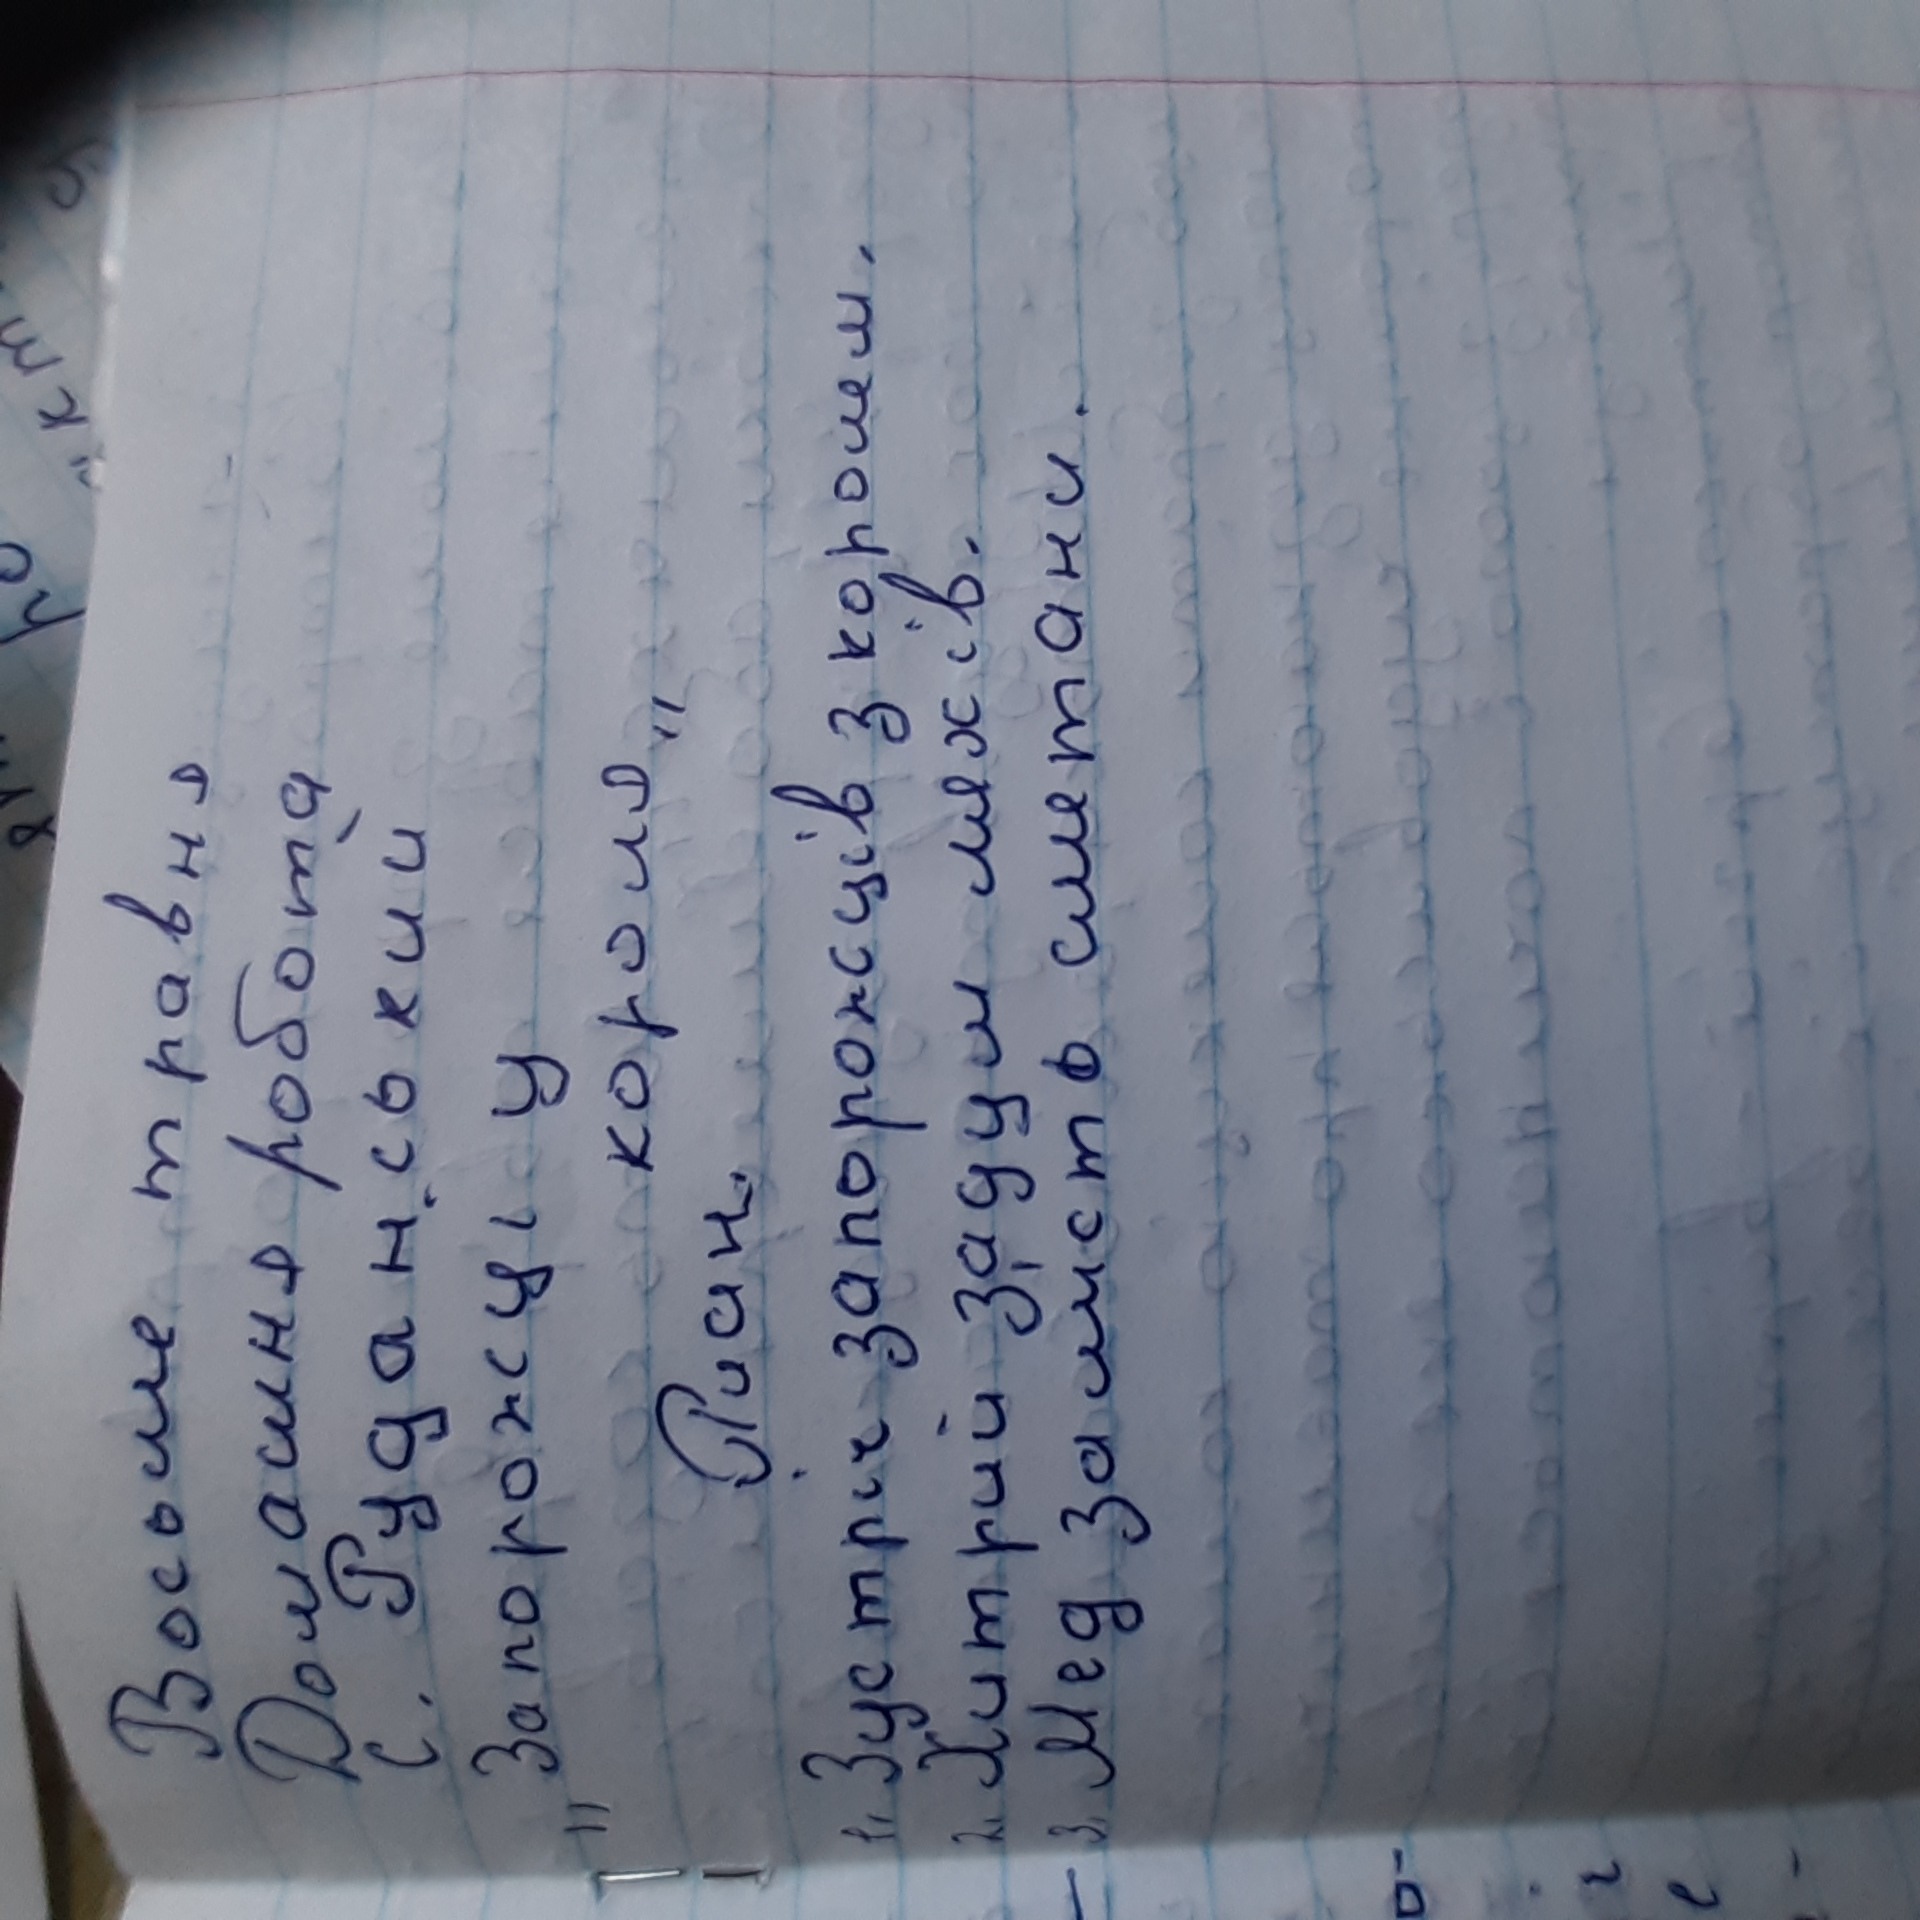 Восьме травня
Домашня робота
С. Руданський
"Запорожці у
короля"
План.
1. Зустріч запорожців з королем.
2. Хитрий задум ляхів.
3. Мед замість сметани.